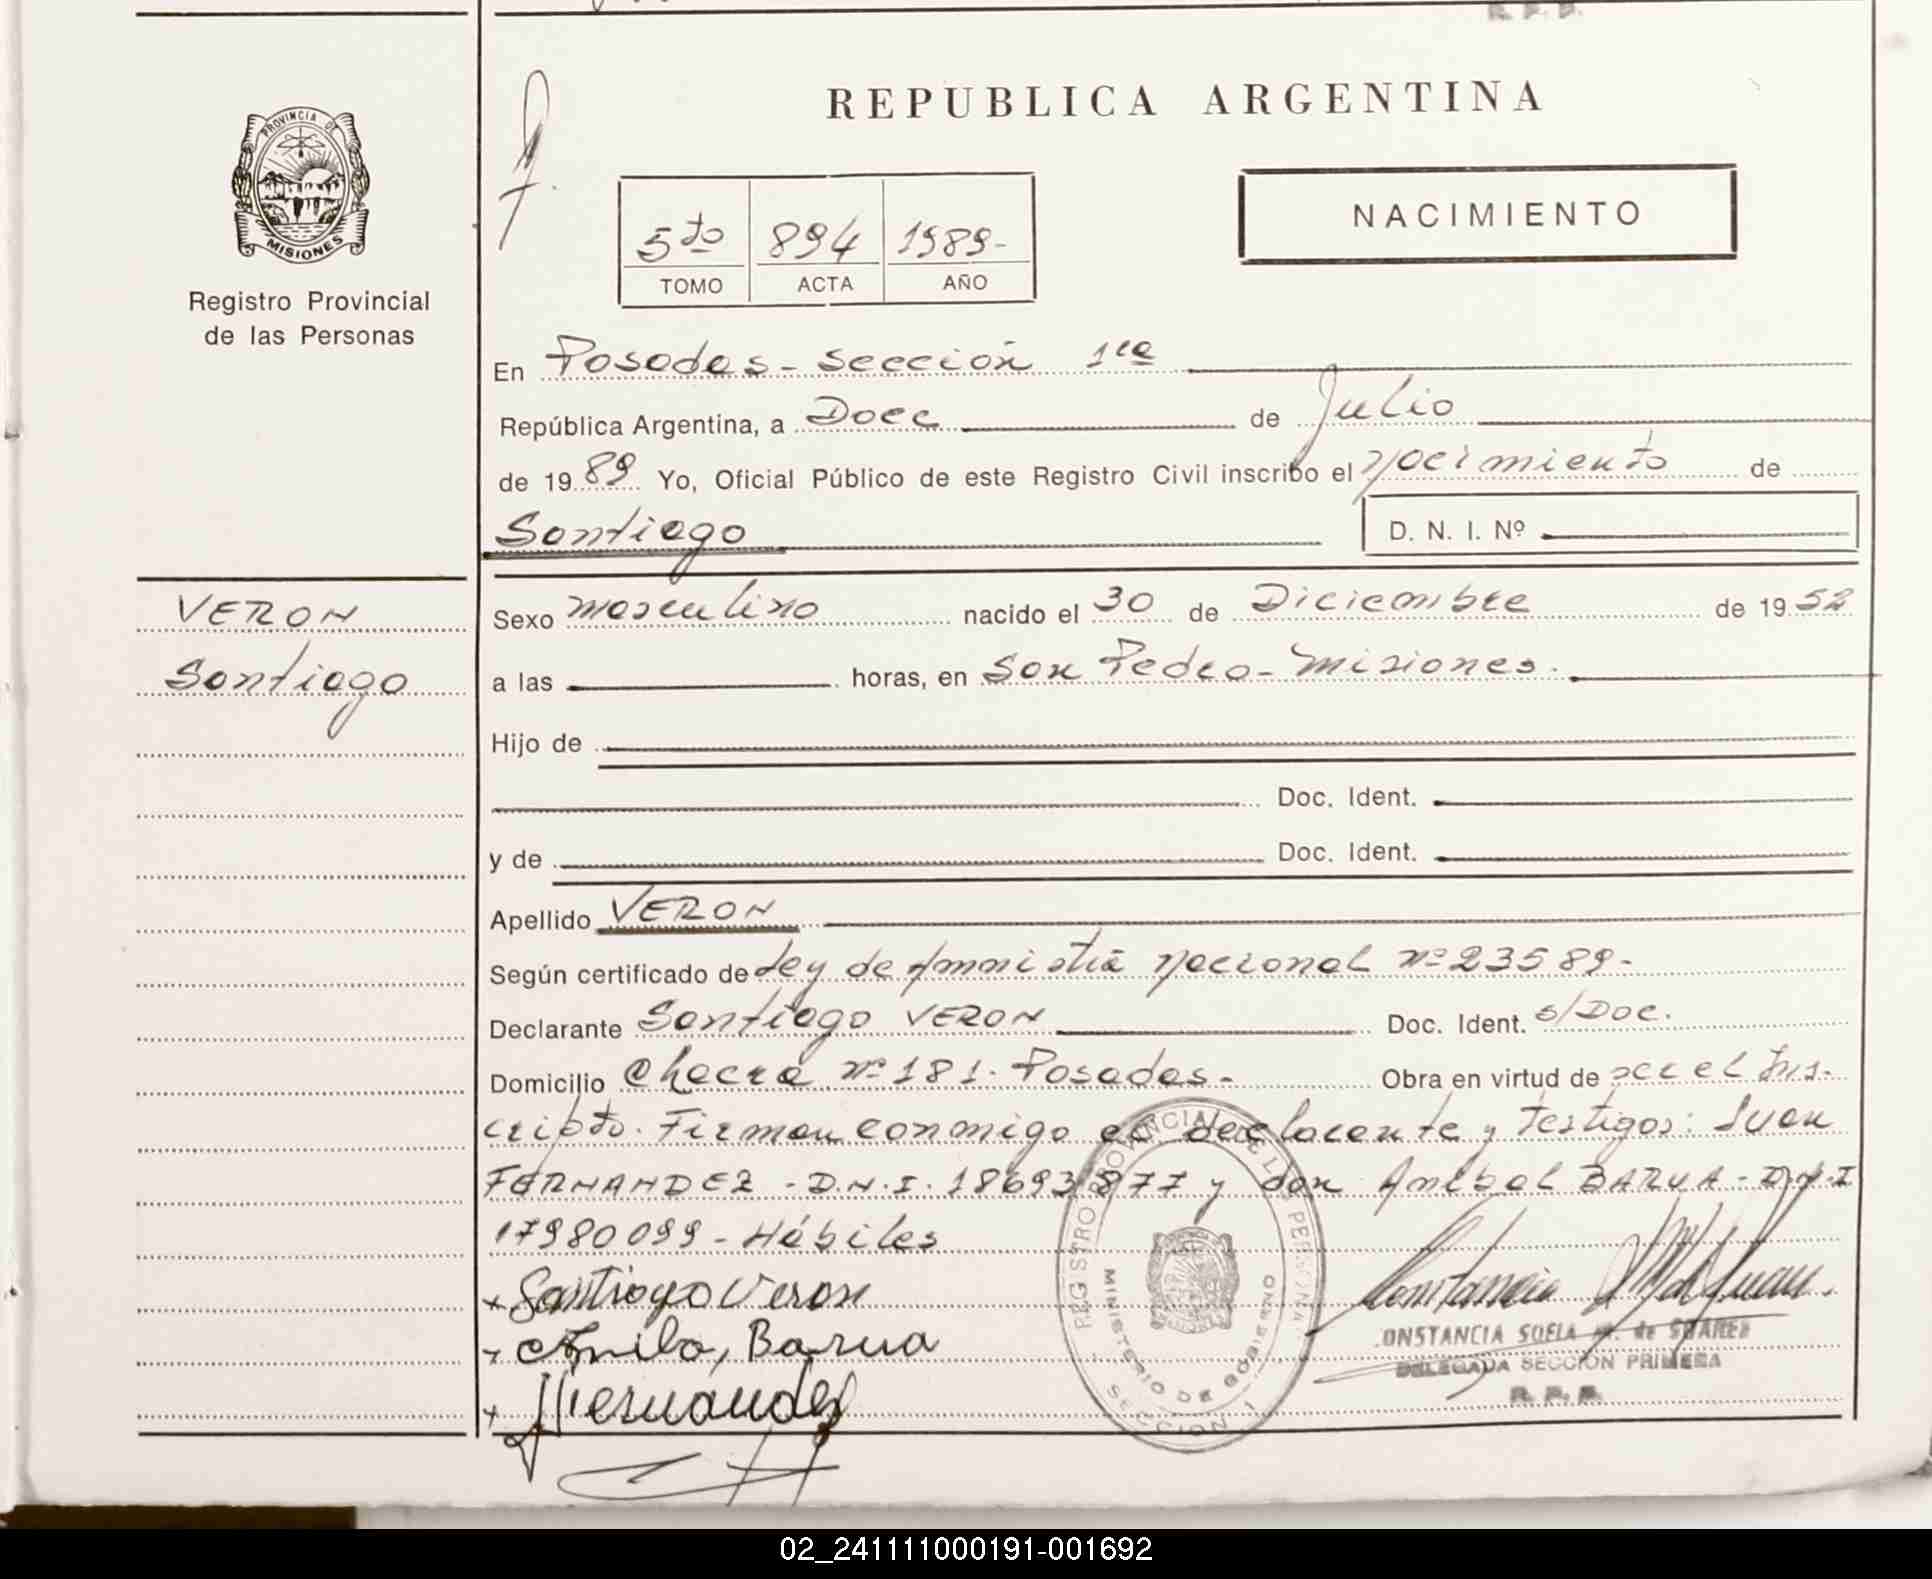 R. P. P.
PROVINCIA DE
MISIONES
Registro Provincial
de las Personas
REPUBLICA ARGENTINA
5to 894 1989-
TOMO ACTA AÑO
NACIMIENTO
En Posadas - sección 1ra
República Argentina, a Doce de Julio
de 1989 Yo, Oficial Público de este Registro Civil inscribo el nacimiento de
Santiago D. N. I. Nº
VERON
Santiago
Sexo masculino nacido el 30 de Diciembre de 1952
a las horas, en San Pedro - Misiones.
Hijo de
Doc. Ident.
y de Doc. Ident.
Apellido VERON
Según certificado de Ley de Amnistia nacional nº 23589-
Declarante Santiago VERON Doc. Ident. s/Doc.
Domicilio Chacra nº 181. Posadas. Obra en virtud de ser el Ins-
cripto. Firman conmigo el declarante y Testigos: Juan
FERNANDEZ - D.N.I. 18693877 y don Anibal BARUA - D.N.I
17980099 - Hábiles
x Santiago Veron
Barua
REGISTRO PROVINCIAL DE LAS PERSONAS
MINISTERIO DE GOBIERNO
SECCION 1
Constancia
CONSTANCIA SOFIA M. de SUAREZ
DELEGADA SECCION PRIMERA
R. P. P.
x Fernandez
02_241111000191-001692